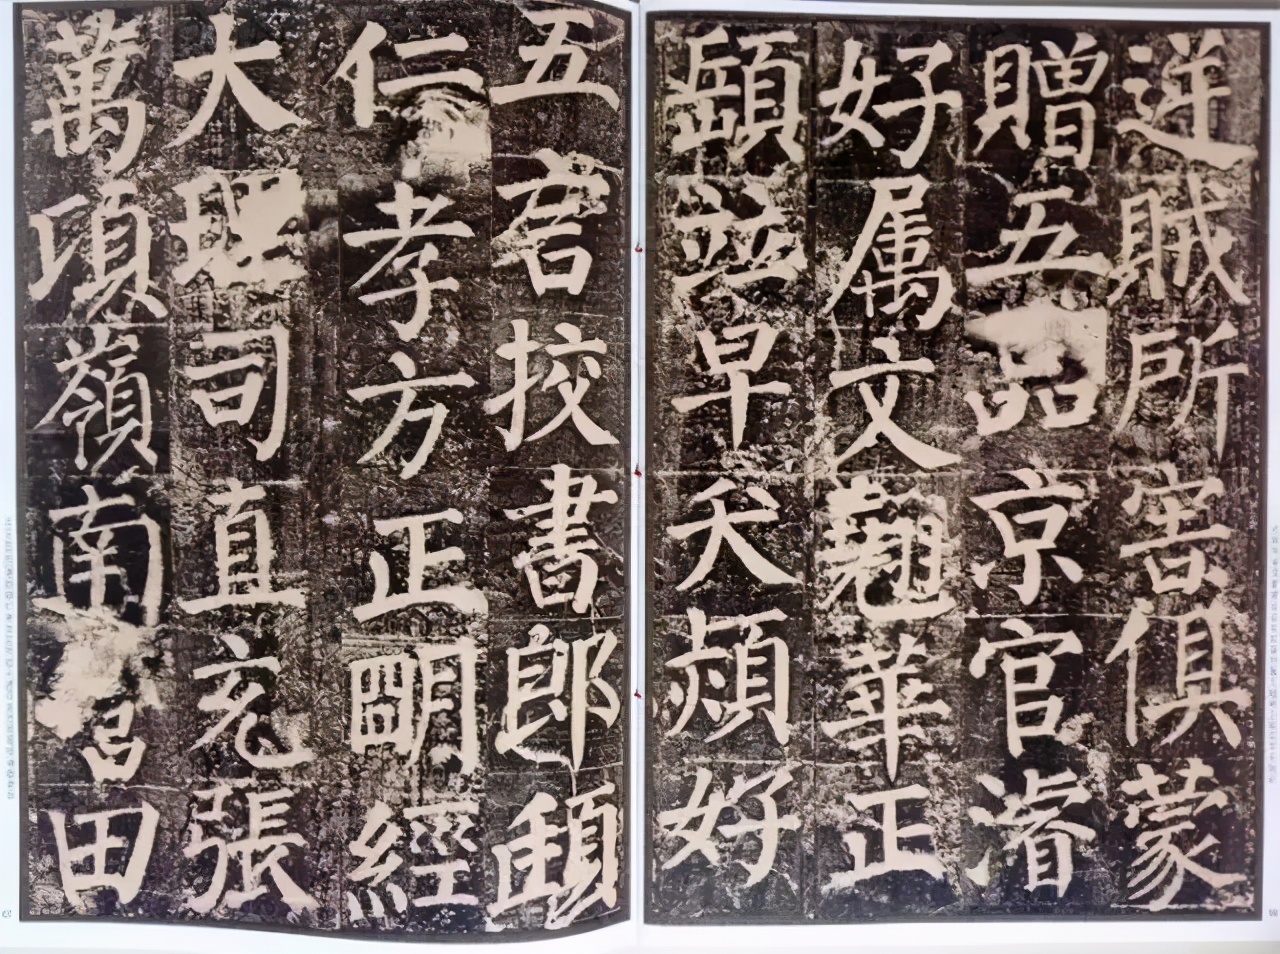 逆賊所害俱蒙
贈五品京官濬
好属文翹華正
顗並早夭熲好
五言校書郎頲
仁孝方正明經
大理司直充張
萬頃嶺南營田